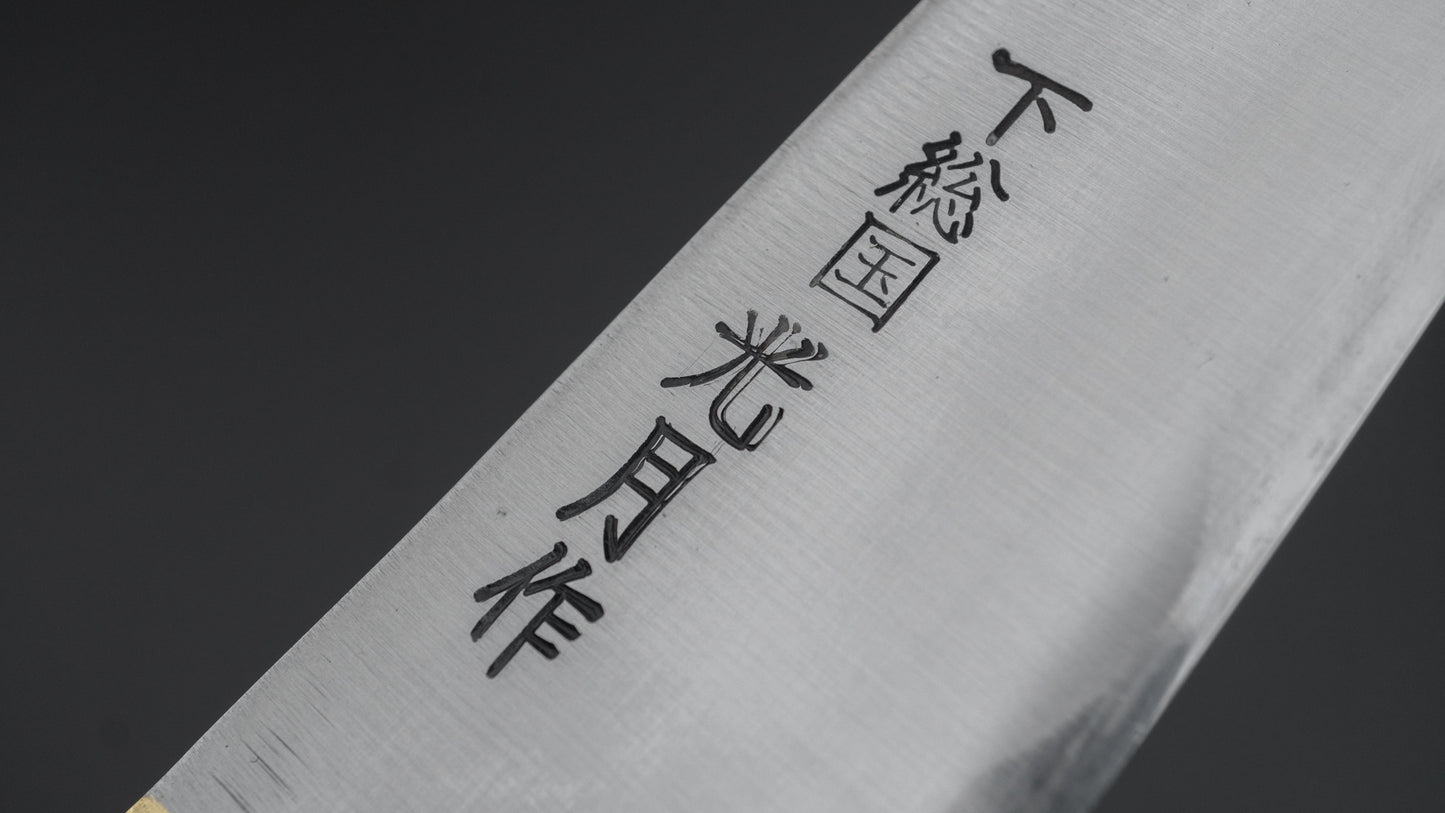 下総国光月作